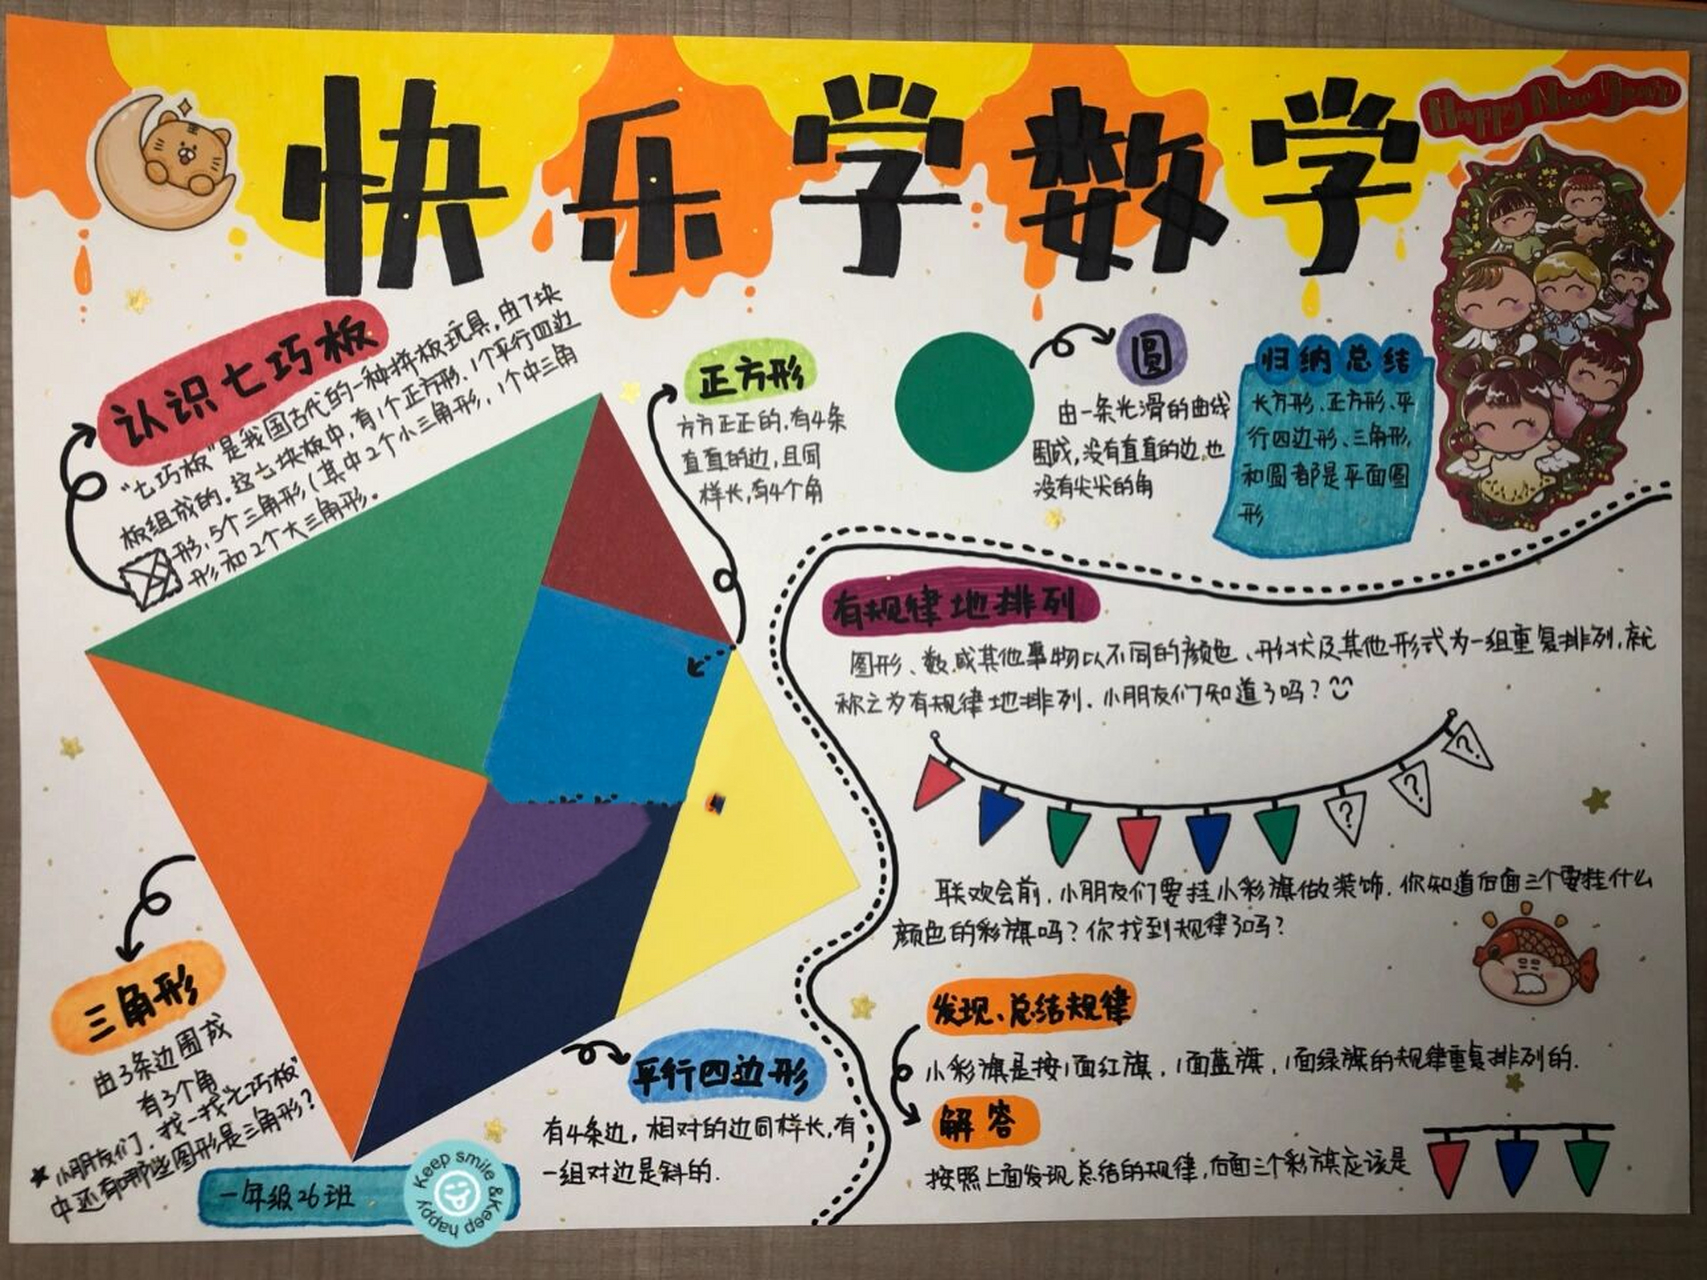 快乐学数学
Happy New Year
认识七巧板
"七巧板"是我国古代的一种拼板玩具,由7块
板组成的.这七块板中,有1个正方形、1个平行四边
形,5个三角形(其中2个小三角形,1个中三角
形和2个大三角形.
正方形
方方正正的,有4条
直直的边,且同
样长,有4个角
圆
由一条光滑的曲线
围成,没有直直的边,也
没有尖尖的角
归纳总结
长方形、正方形、平
行四边形、三角形,
和圆都是平面图
形
有规律地排列
图形、数或其他事物以不同的颜色、形状及其他形式为一组重复排列,就
称之为有规律地排列.小朋友们知道了吗?
? ? ?
联欢会前,小朋友们要挂小彩旗做装饰.你知道后面三个要挂什么
颜色的彩旗吗?你找到规律了吗?
发现、总结规律
小彩旗是按1面红旗,1面蓝旗,1面绿旗的规律重复排列的.
解答
按照上面发现总结的规律,后面三个彩旗应该是
三角形
由3条边围成
有3个角
小朋友们,找一找"七巧板"
中还有哪些图形是三角形?
平行四边形
有4条边,相对的边同样长,有
一组对边是斜的.
一年级26班
Keep smile &Keep happy